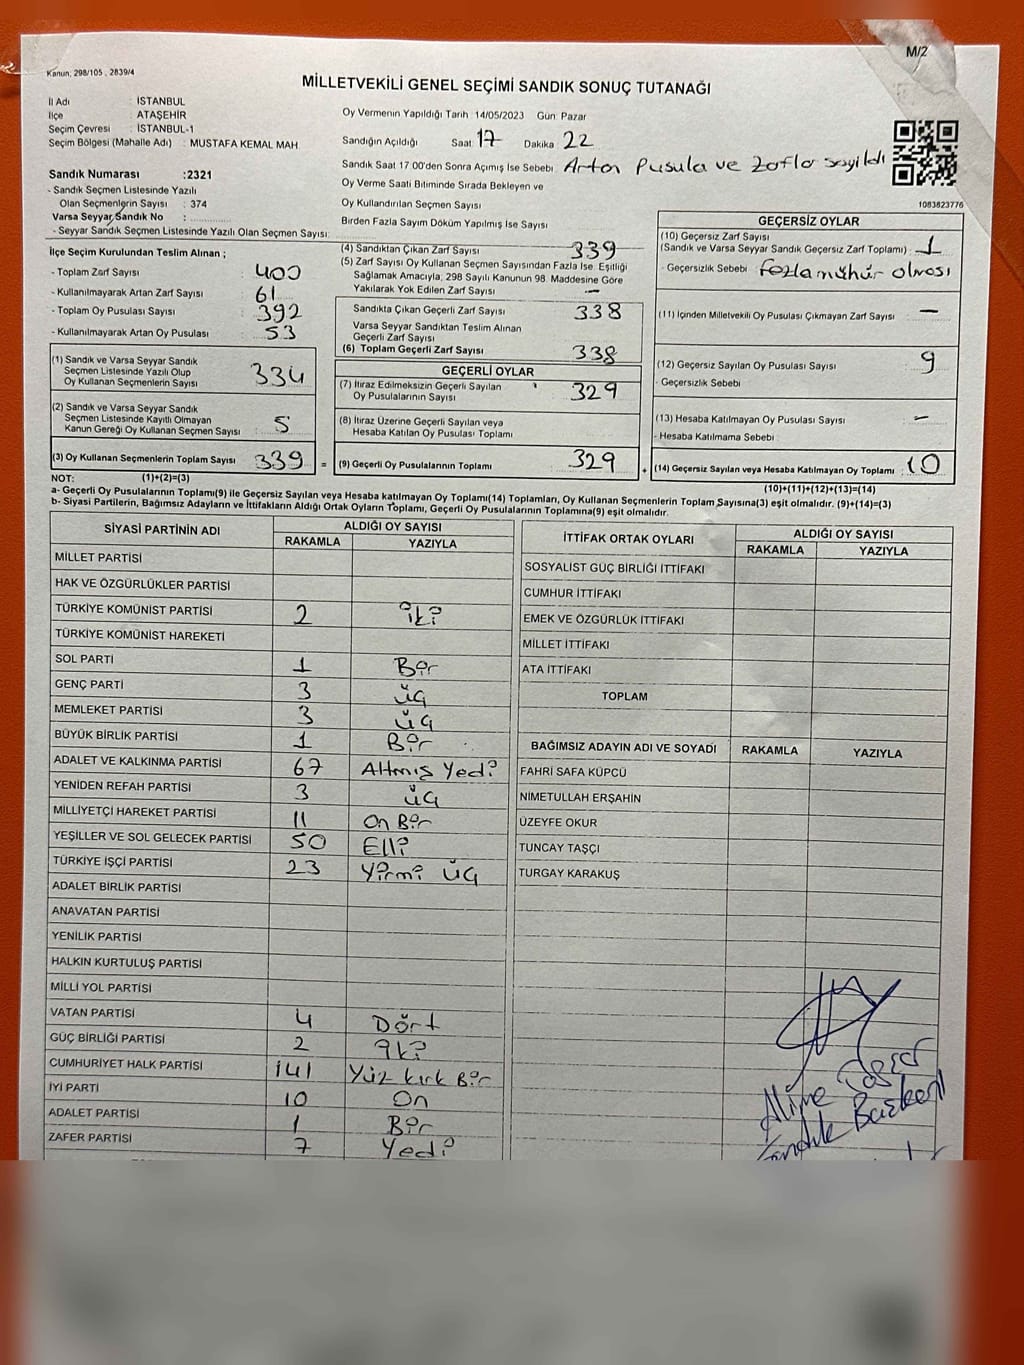 M/2
Kanun; 298/105 , 2839/4
MİLLETVEKİLİ GENEL SEÇİMİ SANDIK SONUÇ TUTANAĞI
İl Adı : İSTANBUL
İlçe : ATAŞEHİR
Seçim Çevresi : İSTANBUL-1
Seçim Bölgesi (Mahalle Adı) : MUSTAFA KEMAL MAH
Sandık Numarası :2321
- Sandık Seçmen Listesinde Yazılı
Olan Seçmenlerin Sayısı : 374
Varsa Seyyar Sandık No :
- Seyyar Sandık Seçmen Listesinde Yazılı Olan Seçmen Sayısı:
Oy Vermenin Yapıldığı Tarih :14/05/2023 Gün: Pazar
Sandığın Açıldığı Saat 17 Dakika 22
Sandık Saat 17.00'den Sonra Açımış İse Sebebi Artan Pusula ve Zarflar sayıldı
Oy Verme Saati Bitiminde Sırada Bekleyen ve
Oy Kullandırılan Seçmen Sayısı
Birden Fazla Sayım Döküm Yapılmış İse Sayısı
1083823776
İlçe Seçim Kurulundan Teslim Alınan ;
- Toplam Zarf Sayısı 400
- Kullanılmayarak Artan Zarf Sayısı 61
- Toplam Oy Pusulası Sayısı 392
- Kullanılmayarak Artan Oy Pusulası 53
(1) Sandık ve Varsa Seyyar Sandık
Seçmen Listesinde Yazılı Olup
Oy Kullanan Seçmenlerin Sayısı 334
(2) Sandık ve Varsa Seyyar Sandık
Seçmen Listesinde Kayıtlı Olmayan
Kanun Gereği Oy Kullanan Seçmen Sayısı 5
(3) Oy Kullanan Seçmenlerin Toplam Sayısı 339 =
(4) Sandıktan Çıkan Zarf Sayısı 339
(5) Zarf Sayısı Oy Kullanan Seçmen Sayısından Fazla İse, Eşitliği
Sağlamak Amacıyla; 298 Sayılı Kanunun 98. Maddesine Göre
Yakılarak Yok Edilen Zarf Sayısı —
Sandıkta Çıkan Geçerli Zarf Sayısı 338
Varsa Seyyar Sandıktan Teslim Alınan
Geçerli Zarf Sayısı
(6) Toplam Geçerli Zarf Sayısı 338
GEÇERLİ OYLAR
(7) İtiraz Edilmeksizin Geçerli Sayılan
Oy Pusulalarının Sayısı 329
(8) İtiraz Üzerine Geçerli Sayılan veya
Hesaba Katılan Oy Pusulası Toplamı
(9) Geçerli Oy Pusulalarının Toplamı 329 +
GEÇERSİZ OYLAR
(10) Geçersiz Zarf Sayısı
(Sandık ve Varsa Seyyar Sandık Geçersiz Zarf Toplamı) 1
- Geçersizlik Sebebi Fazla mühür olması
(11) İçinden Milletvekili Oy Pusulası Çıkmayan Zarf Sayısı —
(12) Geçersiz Sayılan Oy Pusulası Sayısı 9
- Geçersizlik Sebebi
(13) Hesaba Katılmayan Oy Pusulası Sayısı —
- Hesaba Katılmama Sebebi
(14) Geçersiz Sayılan veya Hesaba Katılmayan Oy Toplamı 10
NOT: (1)+(2)=(3) (10)+(11)+(12)+(13)=(14)
a- Geçerli Oy Pusulalarının Toplamı(9) ile Geçersiz Sayılan veya Hesaba katılmayan Oy Toplamı(14) Toplamları, Oy Kullanan Seçmenlerin Toplam Sayısına(3) eşit olmalıdır. (9)+(14)=(3)
b- Siyasi Partilerin, Bağımsız Adayların ve İttifakların Aldığı Ortak Oyların Toplamı, Geçerli Oy Pusulalarının Toplamına(9) eşit olmalıdır.
SİYASİ PARTİNİN ADI ALDIĞI OY SAYISI
RAKAMLA YAZIYLA
MİLLET PARTİSİ
HAK VE ÖZGÜRLÜKLER PARTİSİ
TÜRKİYE KOMÜNİST PARTİSİ 2 İki
TÜRKİYE KOMÜNİST HAREKETİ
SOL PARTİ 1 Bir
GENÇ PARTİ 3 üç
MEMLEKET PARTİSİ 3 üç
BÜYÜK BİRLİK PARTİSİ 1 Bir
ADALET VE KALKINMA PARTİSİ 67 Altmış Yedi
YENİDEN REFAH PARTİSİ 3 üç
MİLLİYETÇİ HAREKET PARTİSİ 11 On Bir
YEŞİLLER VE SOL GELECEK PARTİSİ 50 Elli
TÜRKİYE İŞÇİ PARTİSİ 23 Yirmi üç
ADALET BİRLİK PARTİSİ
ANAVATAN PARTİSİ
YENİLİK PARTİSİ
HALKIN KURTULUŞ PARTİSİ
MİLLİ YOL PARTİSİ
VATAN PARTİSİ 4 Dört
GÜÇ BİRLİĞİ PARTİSİ 2 İki
CUMHURİYET HALK PARTİSİ 141 Yüz kırk Bir
İYİ PARTİ 10 On
ADALET PARTİSİ 1 Bir
ZAFER PARTİSİ 7 Yedi
İTTİFAK ORTAK OYLARI ALDIĞI OY SAYISI
RAKAMLA YAZIYLA
SOSYALİST GÜÇ BİRLİĞİ İTTİFAKI
CUMHUR İTTİFAKI
EMEK VE ÖZGÜRLÜK İTTİFAKI
MİLLET İTTİFAKI
ATA İTTİFAKI
TOPLAM
BAĞIMSIZ ADAYIN ADI VE SOYADI RAKAMLA YAZIYLA
FAHRİ SAFA KÜPCÜ
NİMETULLAH ERŞAHİN
ÜZEYFE OKUR
TUNCAY TAŞÇI
TURGAY KARAKUŞ
Sandık Başkanı